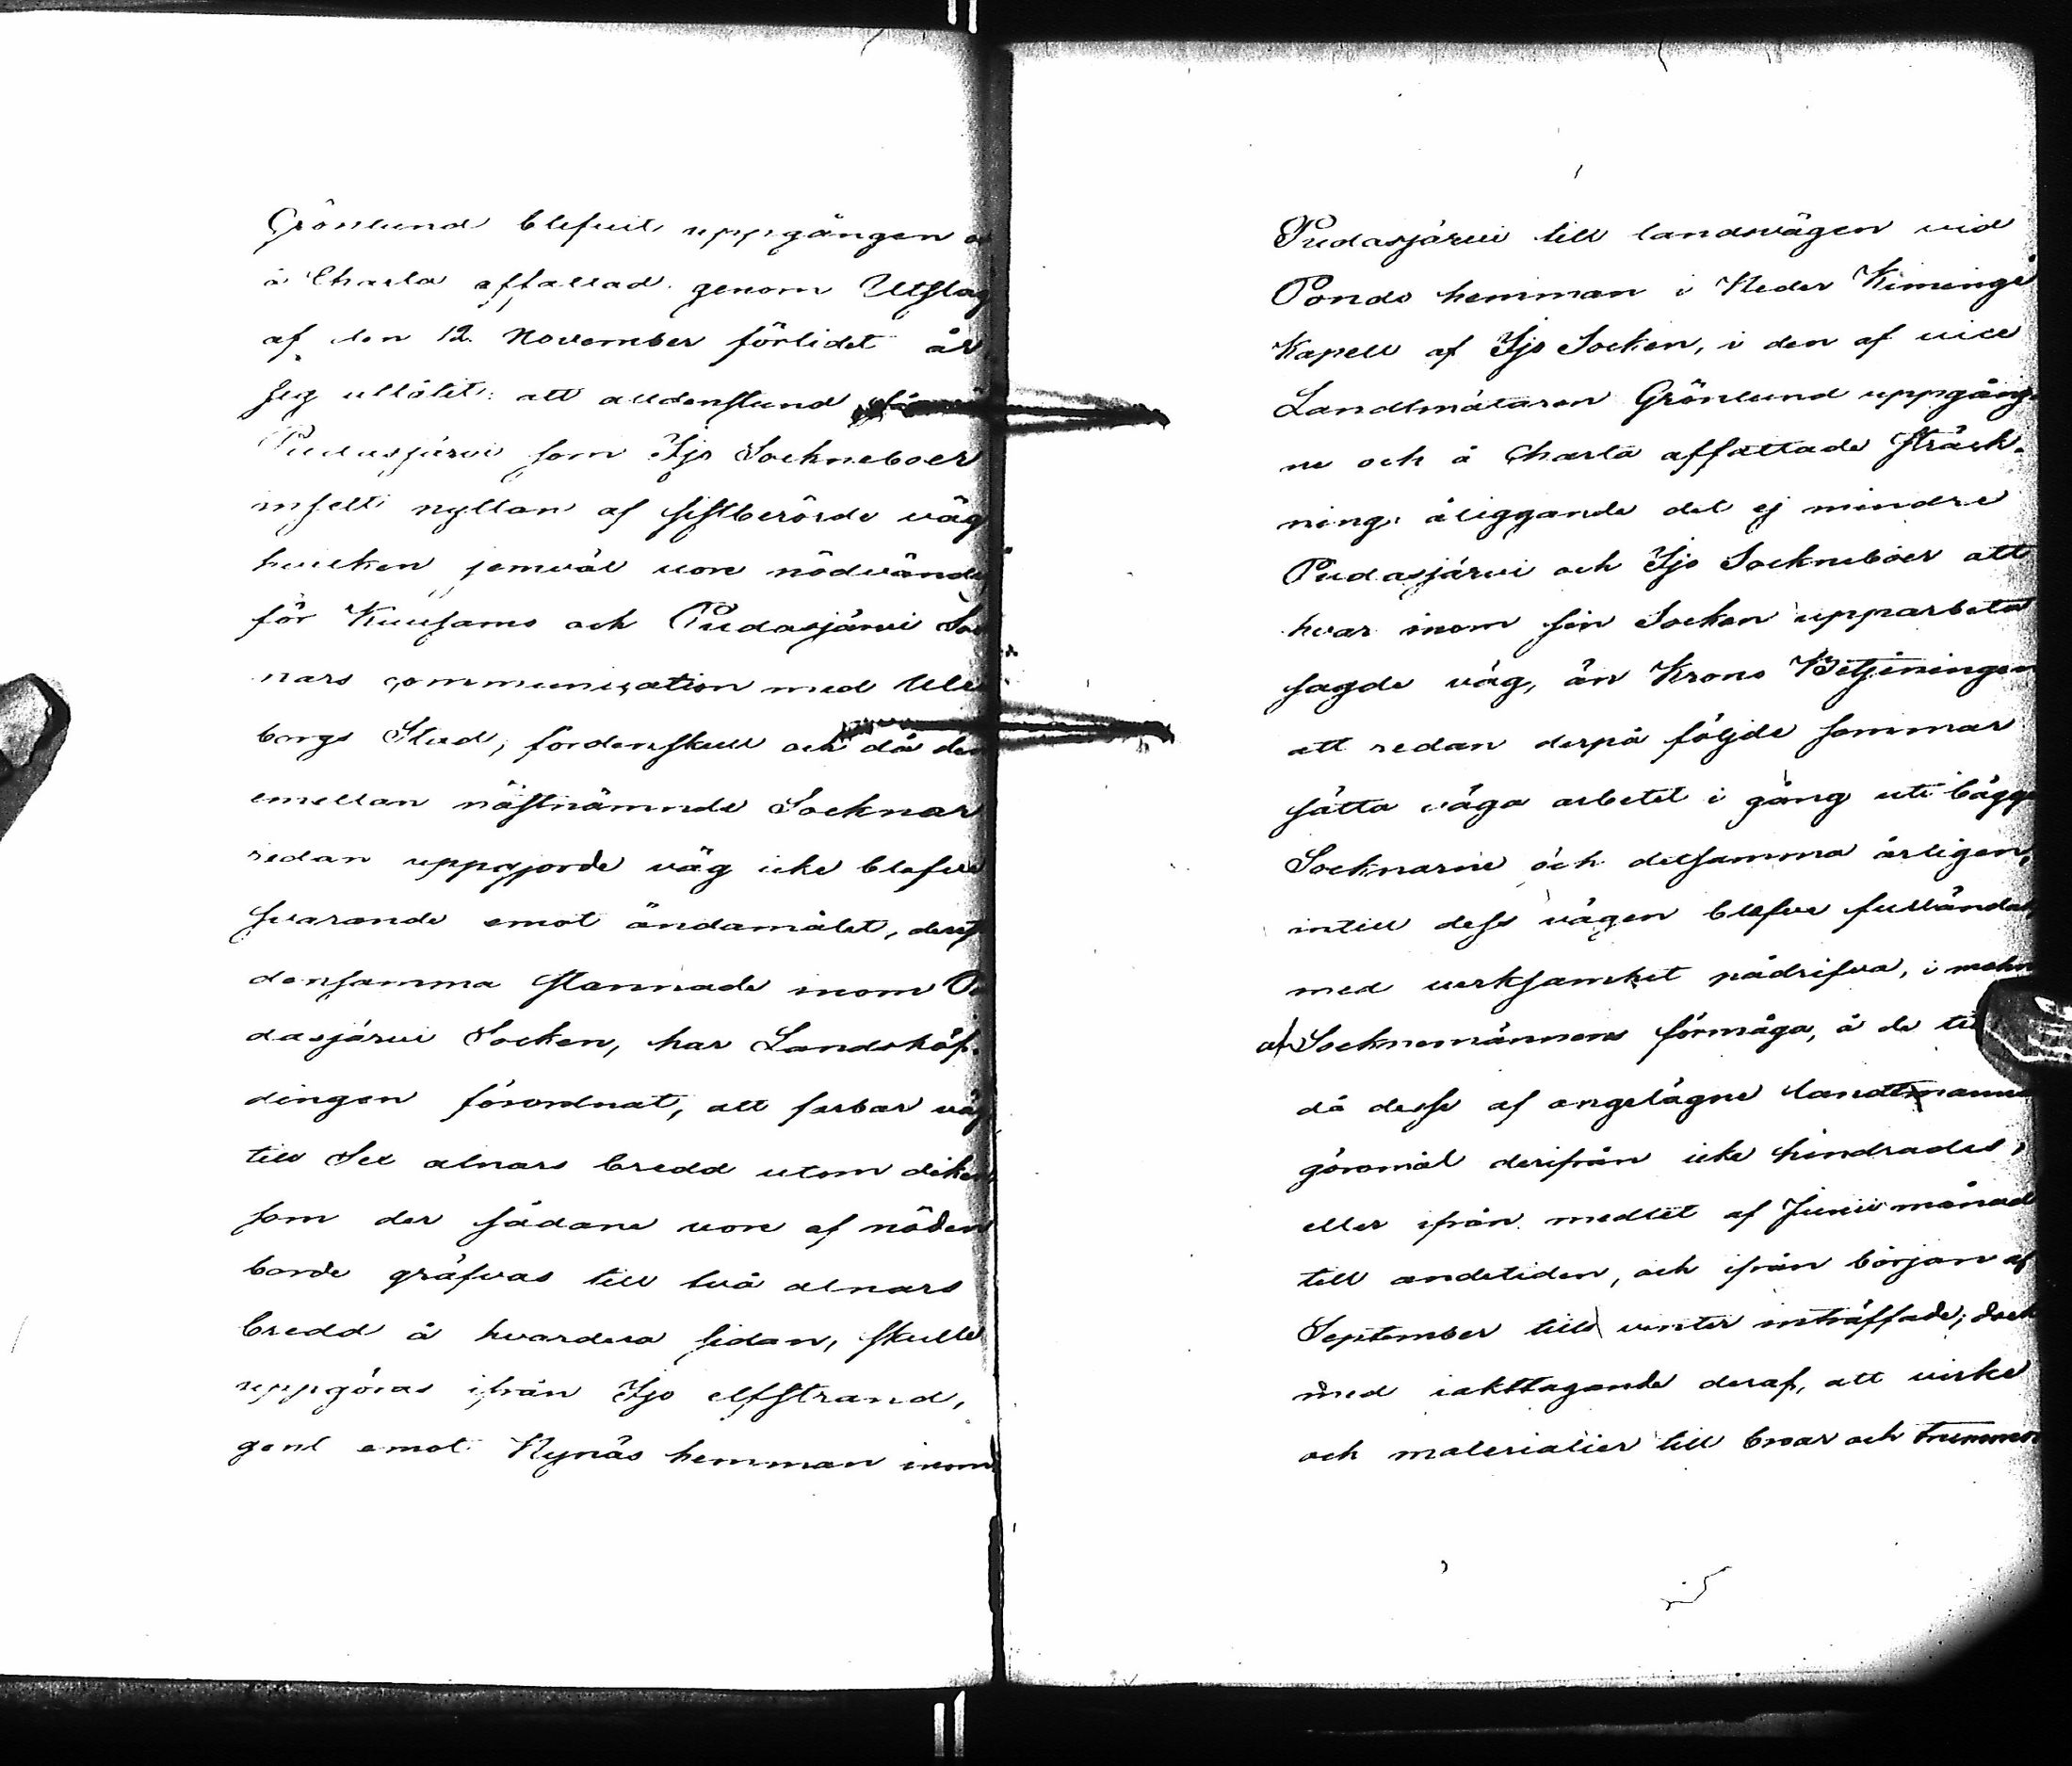 Grönlund blifvit uppgången
å Charta affattad genom Utslag
af den 12. November förlidet år
sig utlåtit: att alldenstund
Pudasjärvi som Ijo Sockneboer
insett nyttan af sistberörde väg
hvilken jemväl vore nödvändig
för Kuusamo och Pudasjärvi Sock
nars communication med Uleå
borgs Stad, fördenskull och då den
emellan nästnämnde Socknar
redan uppgjorde väg icke blefve
svarande emot ändamålet, derest
densamma stannade inom Pu
dasjärvi Socken, har Landshöf-
dingen förordnat, att farbar väg
till Sex alnars bredd utom diken
som der sådane vore af nöden
borde gräfvas till två alnars
bredd å hvardera sidan, skulle
uppgöras ifrån Ijo elfstrand,
gent emot Nynäs hemman inom
Pudasjärvi till landsvägen vid
Pondo hemman i Neder Kimingi
Kapell af Ijo Socken, i den af vice
Landtmätaren Grönlund uppgång-
ne och å Charta affattade sträck-
ning: åliggande det ej mindre
Pudasjärvi och Ijo Sockneboer att
hvar inom sin Socken upparbeta
sagde väg, än Krono Betjeningen
att redan derpå följde sommar
sätta väga arbetet i gång uti bägge
Socknarne och detsamma årligen,
intill dess vägen blefve fulländad
med verksamhet pådrifva, i mohn
af Socknemännens förmåga, å de
då desse af angelägne landtmanna
göromål derifrån icke hindrades,
eller ifrån medlet af Junii månad
till andetiden, och ifrån början af
September tills vinter inträffade; dock
med iakttagande deraf, att virke
och materialier till broar och trummor